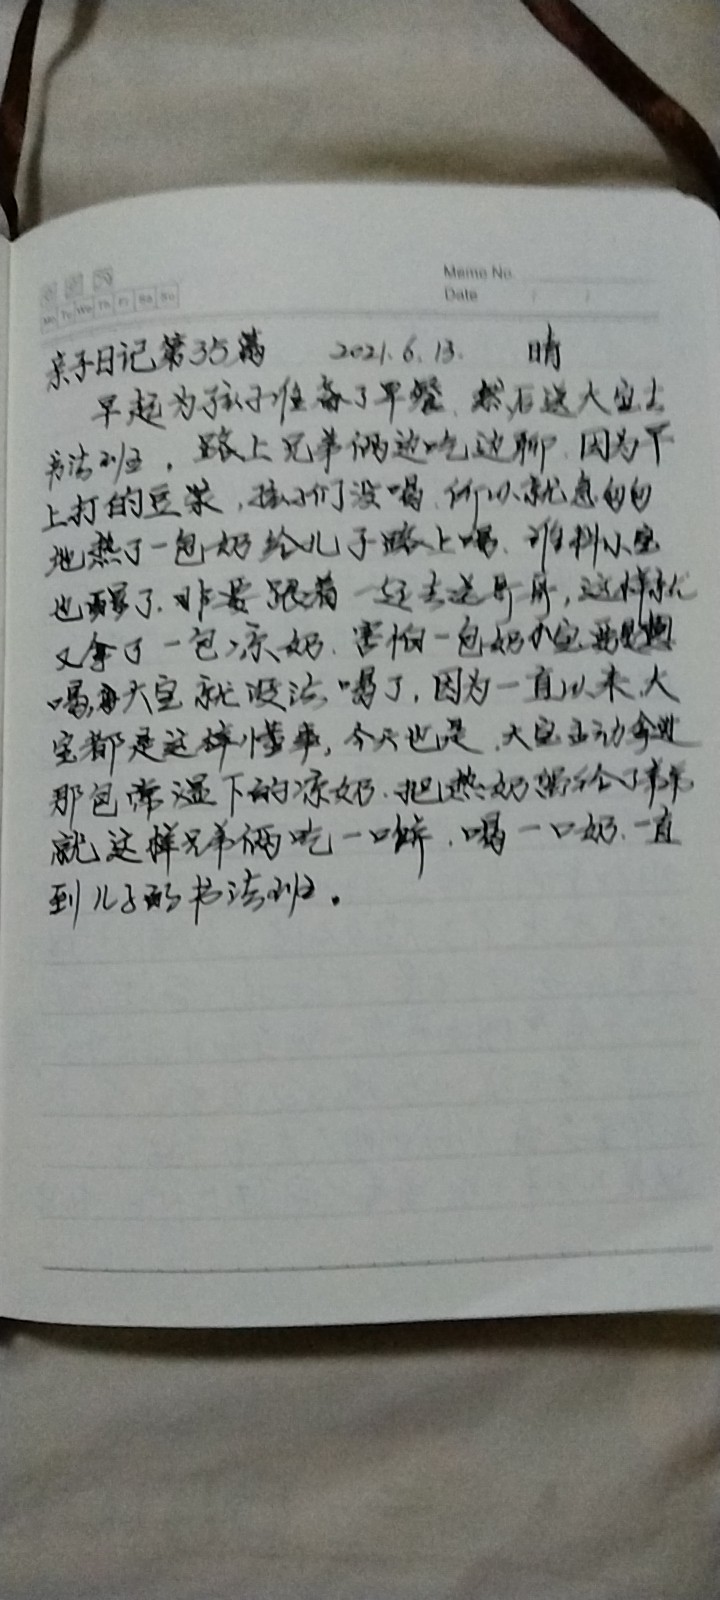 Memo No.
Date / /
Mo Tu We Th Fr Sa Su
亲子日记第35篇 2021.6.13. 晴
早起为孩子准备了早餐,然后送大宝去
书法班。路上兄弟俩边吃边聊,因为
上打的豆浆,孩子们没喝,所以就急匆匆
地热了一包奶给儿子路上喝,谁料小宝
也醒了,非要跟着一起去送哥哥,这样就
又拿了一包凉奶,害怕一包奶小宝
喝,大宝就没法喝了,因为一直以来,大
宝都是这样懂事,今天也是,大宝主动拿过
那包常温下的凉奶,把热奶留给了弟弟
就这样兄弟俩吃一口饼,喝一口奶,一直
到儿子的书法班。